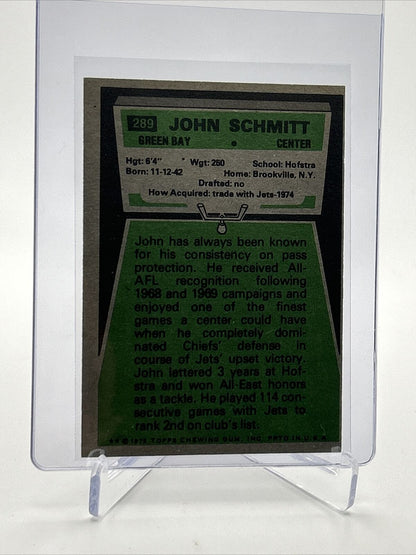 289 JOHN SCHMITT
GREEN BAY • CENTER
Hgt: 6'4" Wgt: 250 School: Hofstra
Born: 11-12-42 Home: Brookville, N.Y.
Drafted: no
How Acquired: trade with Jets-1974
John has always been known
for his consistency on pass
protection. He received All-
AFL recognition following
1968 and 1969 campaigns and
enjoyed one of the finest
games a center could have
when he completely dom-
inated Chiefs' defense in
course of Jets' upset victory.
John lettered 3 years at Hof-
stra and won All-East honors
as a tackle. He played 114 con-
secutive games with Jets to
rank 2nd on club's list.
© 1975 TOPPS CHEWING GUM, INC. PRTD IN U.S.A.